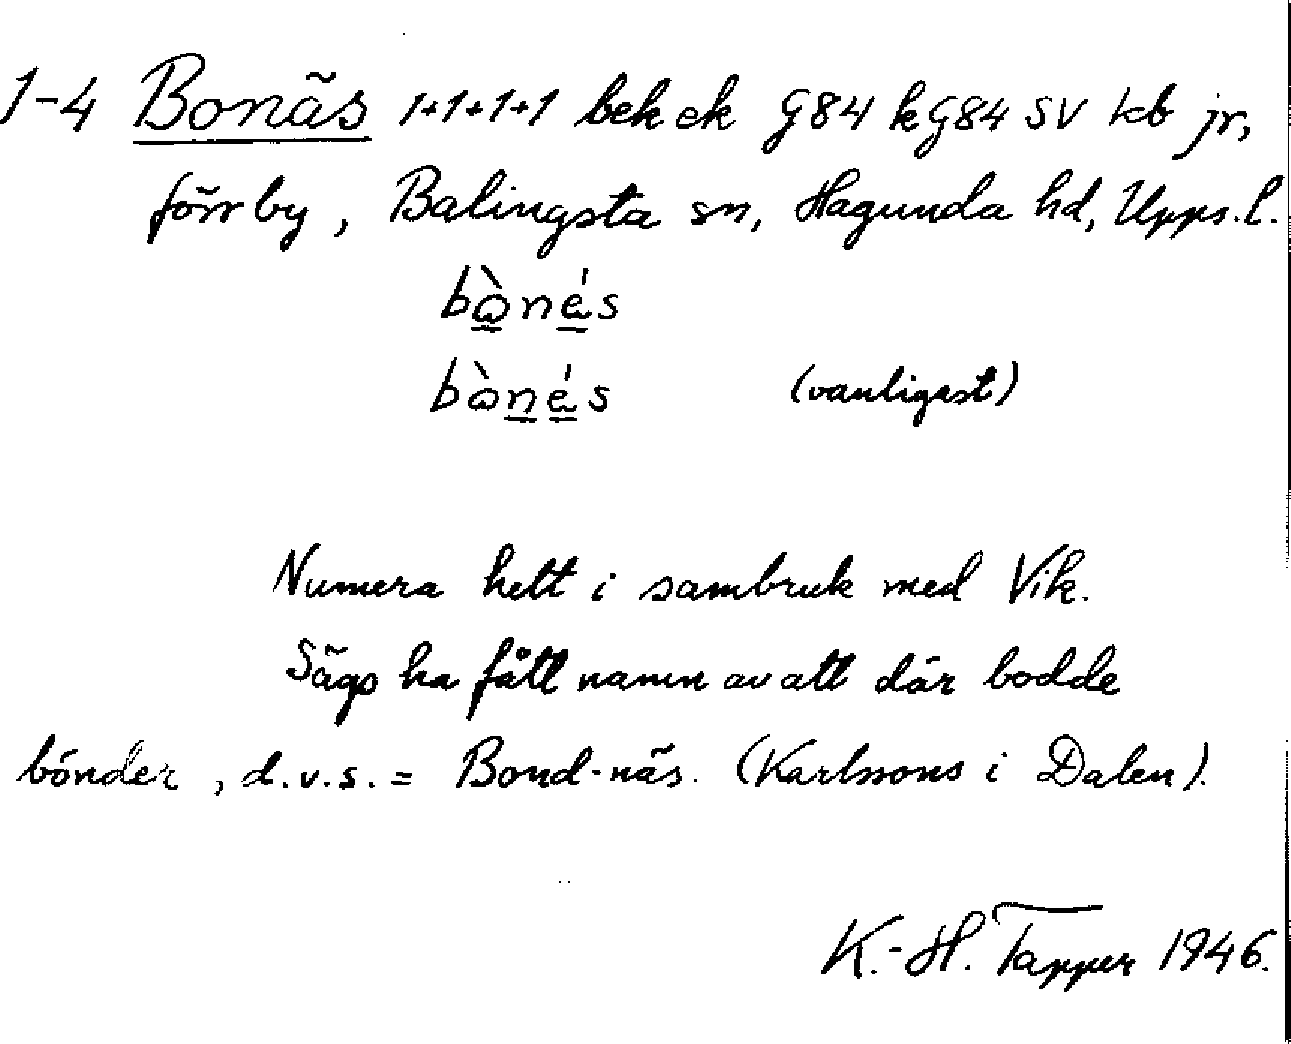 1-4 Bonäs 1+1+1+1 bek ek G84 k G84 SV kb jr,
förr by, Balingsta sn, Hagunda hd, Upps. l.
bònés
bònés (vanligast)
Numera helt i sambruk med Vik.
Sägs ha fått namn av att där bodde
bönder, d.v.s. = Bond-näs. (Karlssons i Dalen).
K.-H. Tapper 1946.